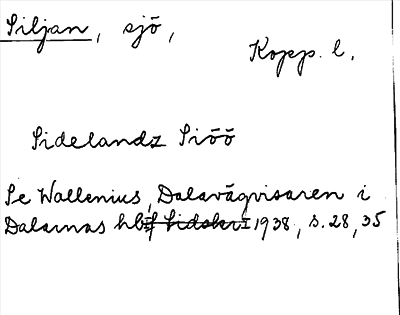 Siljan, sjö,
Kopp. l.
Sidelandz Siöö
Se Wallenius, Dalavägvisaren i
Dalarnas hbf 1938, s. 28, 35